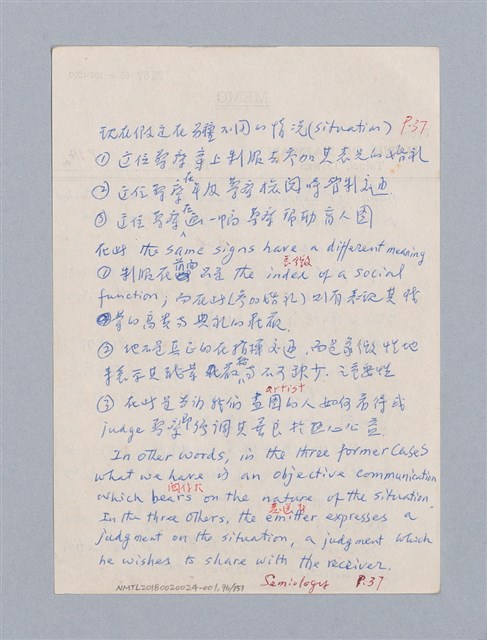 現在假定在另三種不同的情況(situation) P.37
① 這位警察穿上制服去參加其表兄的婚礼
② 這位警察在年度警察檢閱時管制交通
③ 這位警察在画一幅警察帮助盲人图
在此 the same signs have a different meaning
① 制服在前面只是 the index of a social 表徵
function; 而在此(參加婚礼)則有表現其
的高貴与典礼的莊嚴.
② 他不是真正的在指揮交通,而是象徵性地
表示其職業 莊嚴与不可缺少 之重要性
③ 在此是告訴我們 画图的人如何看待或 artist
judge 警察 強調其善良
In other words, in the three former cases
what we have is an objective communication
which bears on the nature of the situation.
In the three others, the emitter expresses a
judgment on the situation, a judgment which
he wishes to share with the receiver.
Semiology P.37
NMTL20180020024-001, 96/153
MEMO